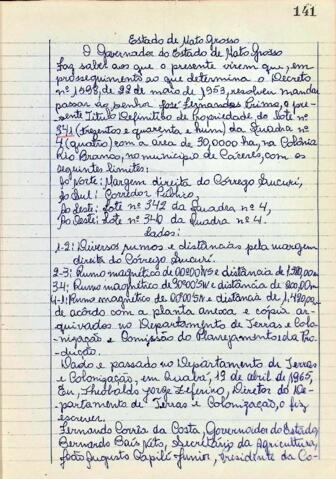 141
Estado de Mato Grosso
O Governador do Estado de Mato Grosso
Faz saber aos que o presente virem que, em
prosseguimento ao que determina o Decreto
nº 1598, de 22 de maio de 1953, resolveu mandar
passar ao senhor José Fernandes Primo, o pre-
sente Título Definitivo de Propriedade do lote nº
341 (trezentos e quarenta e hum) da Quadra nº
4 (quatro) com a área de 30,0000 ha, na Colônia
Rio Branco, no município de Cáceres, com os
seguinte limites:
Ao Norte: Margem direita do Córrego Sucuri,
Ao Sul: Corredor Público,
Ao Leste: Lote nº 342 da Quadra nº 4,
Ao Oeste: Lote nº 340 da Quadra nº 4.
Lados:
1-2: Diversos rumos e distâncias pela margem
direita do Córrego Sucuri.
2-3: Rumo magnético de 00º00'S e distância de
3-4: Rumo magnético de 90º00'SW e distância de 200,00m
4-1: Rumo magnético de 00º00'N e distância de
de acôrdo com a planta anexa e cópia ar-
quivados no Departamento de Terras e Colo-
nização e Comissão do Planejamento da Pro-
dução.
Dado e passado no Departamento de Terras
e Colonização, em Cuiabá, 13 de abril de 1965,
Eu, Theobaldo Jorge Zeferino, Diretor do De-
partamento de Terras e Colonização, o fiz
escrever.
Fernando Corrêa da Costa, Governador do Estado,
Bernardo Bais Neto, Secretário da Agricultura,
João Augusto Capilé Junior, Presidente da Co-